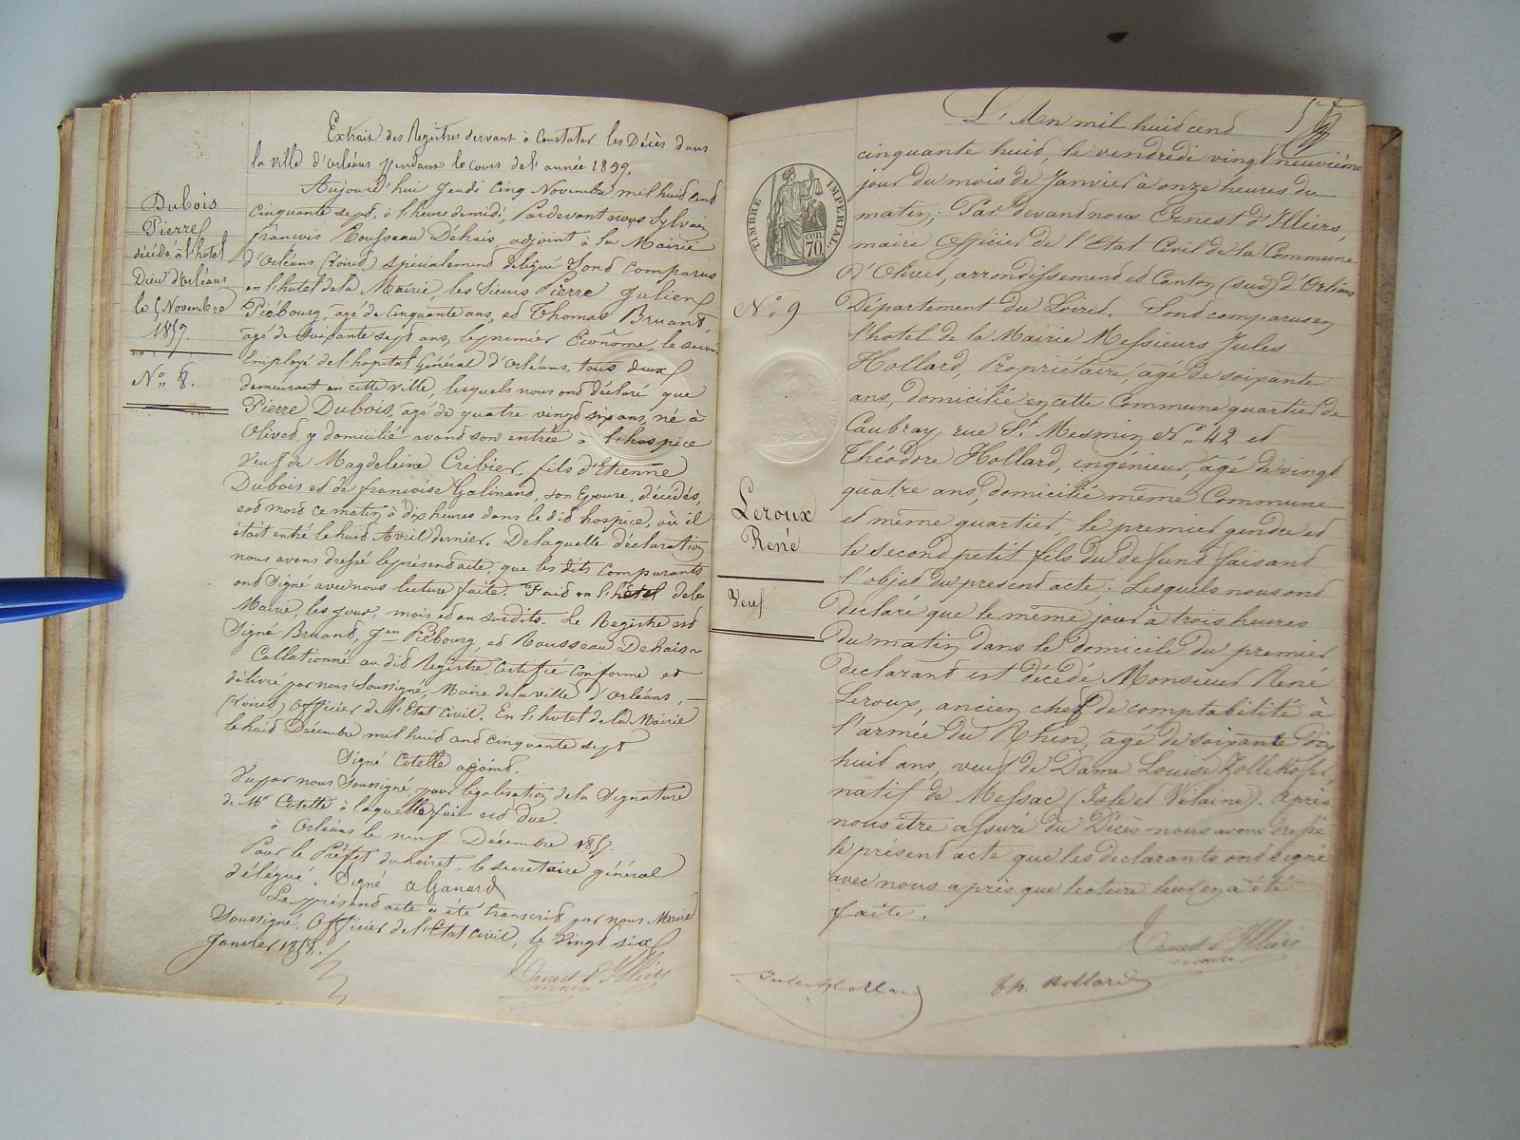 Extrait des Registres servant à Constater les Décès dans
la ville d'orléans pendant le cours de l'année 1857.
Aujourd'hui Jeudi Cinq Novembre mil huit Cent
Cinquante sept, à l'heure de midi, Pardevant nous Sylvain
françois Rousseau Dehais, adjoint à la Mairie
d'Orléans (Loiret) spécialement délégué Sont comparus
en l'hotel de la Mairie, les Sieurs Pierre Julien
Picbourg, âgé de Cinquante ans, et Thomas Bruant,
âgé de Soixante sept ans, le premier Econôme, le second
Employé de l'hopital Général d'Orléans, tous deux
demeurant en cette ville, lesquels nous ont déclaré que
Pierre Dubois, âgé de quatre vingt six ans, né à
Olivet y domicilié avant son entrée à l'hospice
Veuf de Magdeleine Cribier, fils d'Etienne
Dubois et de françoise Galinand, son Epouse, décédés,
est mort ce matin à dix heures dans le dit hospice, où il
était entré le huit Avril dernier. De laquelle déclaration
nous avons dressé le présent acte que les dits Comparants
ont Signé avec nous lecture faite. Fait en l'hôtel de la
Mairie, les jour, mois et an susdits. Le Registre est
Signé Bruant, Jen Picbourg, et Rousseau Dehais
Collationné au dit Registre Certifié Conforme et
délivré par nous Soussigné, Maire de la ville d'Orléans,
(Loiret) Officier de l'Etat Civil. En l'hotel de la Mairie
le huit Décembre mil huit cent cinquante sept
Signé Cotelle adjoint.
Vu par nous Soussigné, pour légalisation de la Signature
de Mr Cotelle à laquelle foi est due
à Orléans le neuf Décembre 1857
Pour le Préfet du Loiret le secretaire général
délégué. Signé
Le présent acte a été transcrit par nous Maire
Soussigné, Officier de l'Etat civil, le Vingt six
Janvier 1858.
Ernest d'Illiers
maire
Dubois
Pierre
décédé à l'hôtel
Dieu d'Orléans
le 5 Novembre
1857.
No 8.
L'An mil huit cent
cinquante huit, le vendredi vingt neuvième
jour du mois de Janvier à onze heures du
matin; Par devant nous Ernest d'Illiers,
maire Officier de l'Etat Civil de la Commune
d'Olivet, arrondissement et Canton (sud) d'Orléans
Département du Loiret. Sont comparus en
l'hotel de la Mairie Messieurs Jules
Hollard, Propriétaire, âgé de soixante
ans, domicilié en cette Commune quartier de
Caubray, rue St Mesmin No 42 et
Théodore Hollard, ingénieur, âgé de vingt
quatre ans, domicilié même Commune
et même quartier, le premier gendre et
le second petit fils du défunt faisant
l'objet du present acte; Lesquels nous ont
déclaré que le même jour à trois heures
du matin dans le domicile du premier
declarant est décédé Monsieur René
Leroux, ancien chef de comptabilité à
l'armée du Rhin, âgé de soixante dix
huit ans, veuf de Dame Louise Zollikofer,
natif de Messac (Isle et Vilaine). Après
nous être assuré du Décès nous avons dressé
le présent acte que les declarants ont signé
avec nous après que lecture leur en a été
faite.
Ernest d'Illiers
maire
Jules Hollard
Th. Hollard
TIMBRE IMPERIAL
70
No 9
Leroux
René
Veuf